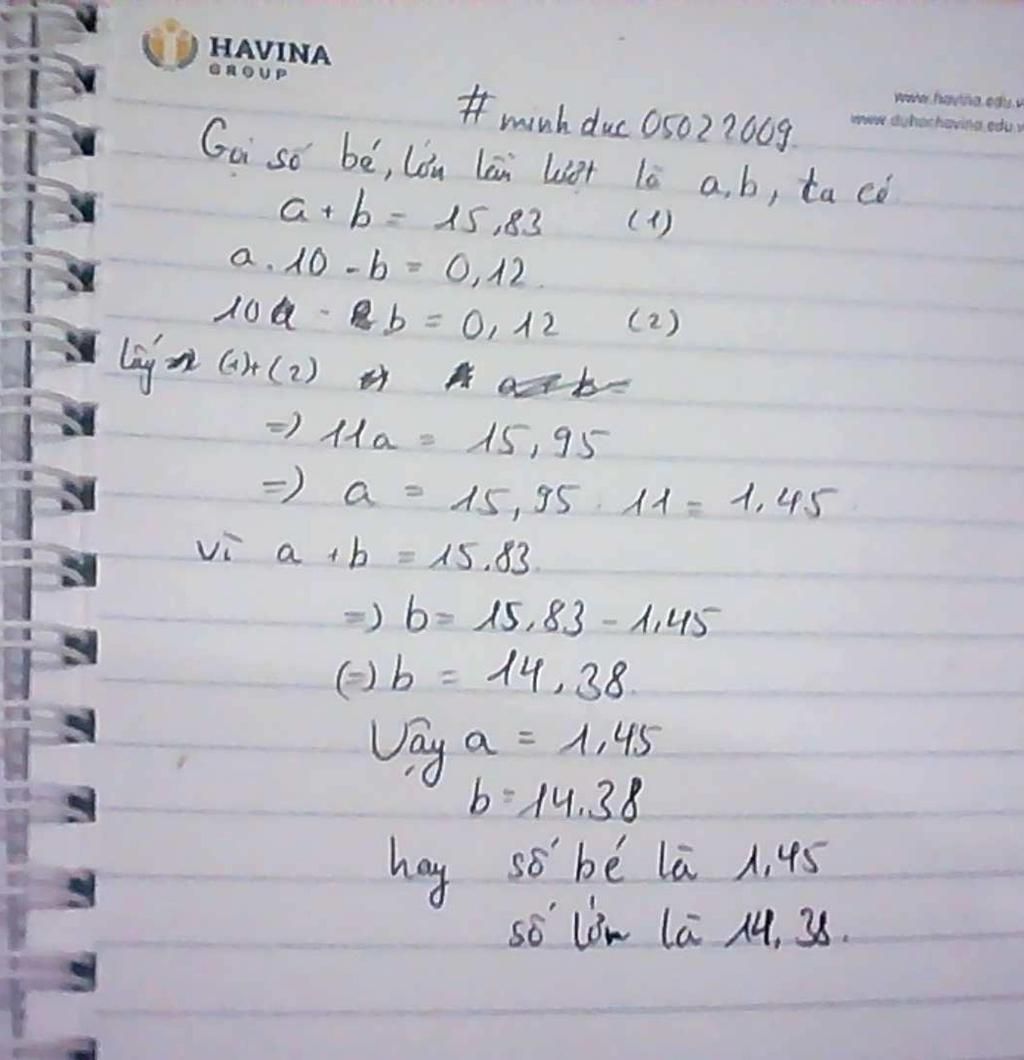 HAVINA
GROUP
www.havina.edu.v
www.duhochavina.edu.v
#minhduc05022009.
Gọi số bé, lớn lần lượt là a,b, ta có
a + b = 15,83 (1)
a.10 - b = 0,12.
10a - b = 0,12 (2)
lấy (1)+(2) a+b=
=) 11a = 15,95
=) a = 15,95 : 11 = 1,45
vì a + b = 15.83.
=) b = 15,83 - 1,45
(=) b = 14,38.
Vậy a = 1,45
b = 14.38
hay số bé là 1,45
số lớn là 14,38.